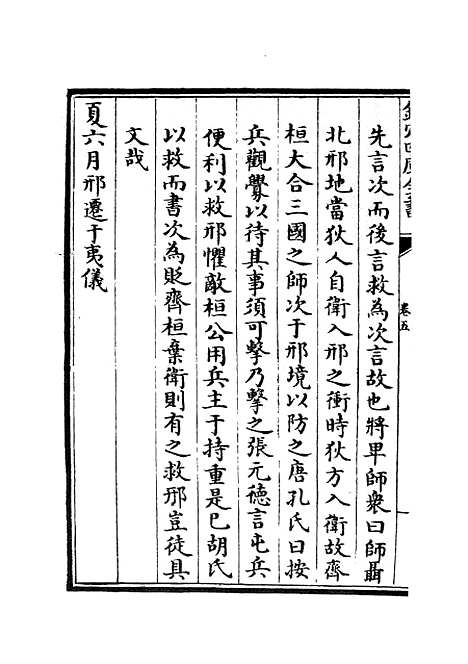 先言次而後言救為次言故也將卑師衆曰師聶
北邢地當狄人自衛入邢之衝時狄方入衛故齊
桓大合三國之師次于邢境以防之唐孔氏曰按
兵觀釁以待其事須可擊乃擊之張元德言屯兵
便利以救邢懼敵桓公用兵主于持重是已胡氏
以救而書次為貶齊桓棄衛則有之救邢豈徒具
文哉
夏六月邢遷于夷儀
卷五